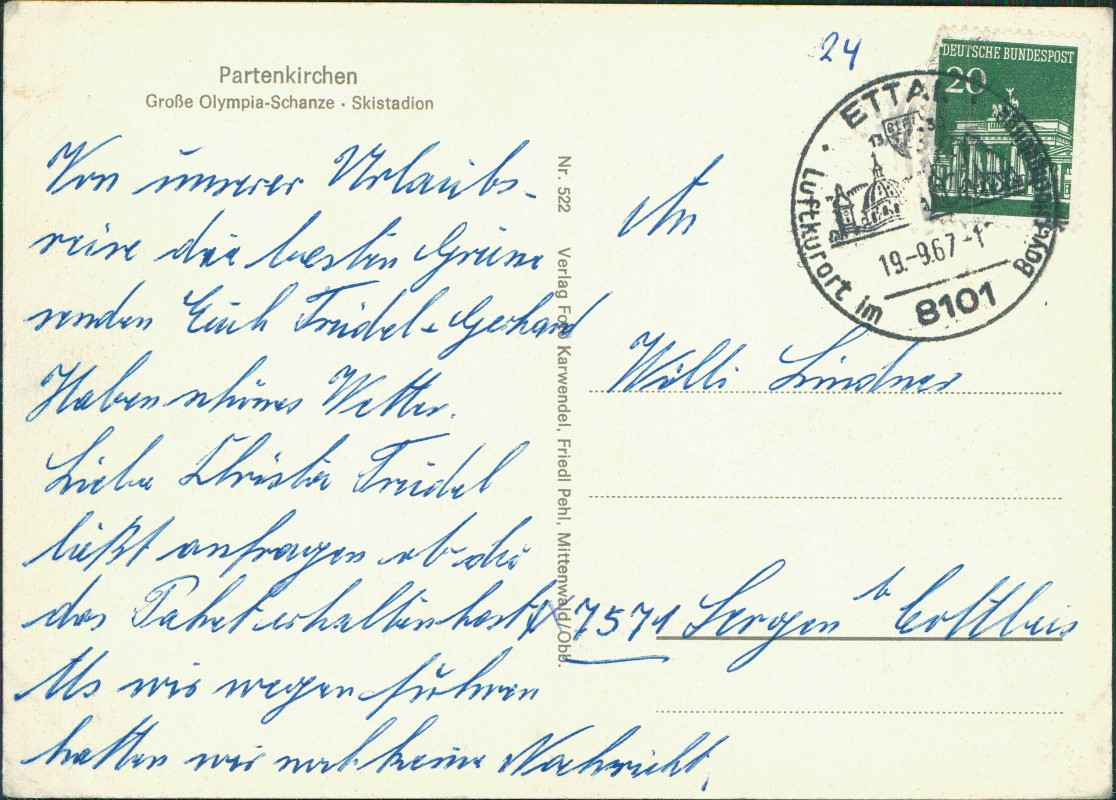 Partenkirchen
Große Olympia-Schanze · Skistadion
Von unserer Urlaubs-
reise die besten Grüße
senden Euch Trudel - Gerhard
Haben schönes Wetter.
Liebe Christa Trudel
läßt anfragen ob du
das Paket erhalten hast
Als wir wegen fuhren
hatten wir noch keine Nachricht.
Nr. 522 Verlag Foto Karwendel, Friedl Pehl, Mittenwald/Obb.
24
DEUTSCHE BUNDESPOST
20
ETTAL
Luftkurort im
19.-9.67-1
8101
An
Willi Lindner
7571 Sergen b Cottbus